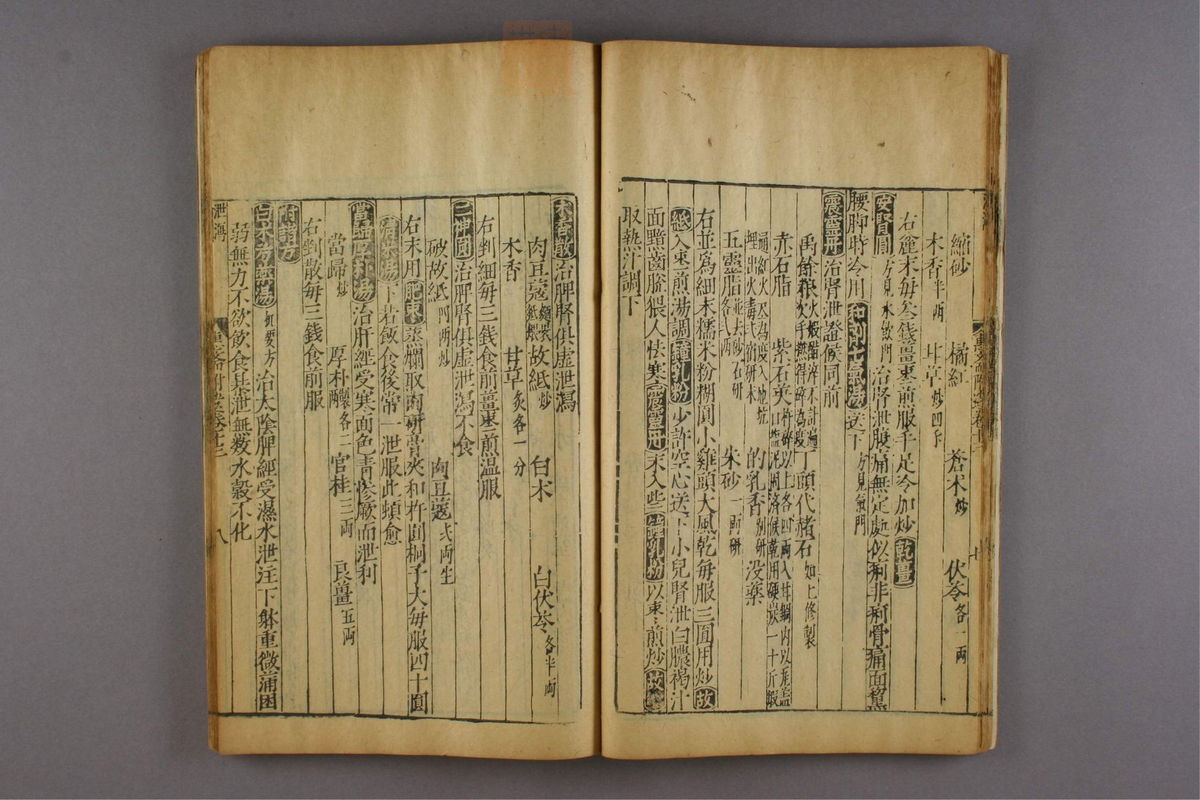 縮砂 橘紅 蒼朮炒 伏苓各一兩
木香半兩 甘草炒四下
右麄末每叁錢薑棗煎服手足冷加炒乾薑
安腎圓方見水飲門治腎泄腹痛無定處似利非利骨痛面黧
腰脚時冷用和劑七氣湯送下方見氣門
震靈丹治腎泄證候同前
禹餘粮火煅醋淬不計遍次手撚得碎為度丁頭代赭石如上修製
赤石脂 紫石英
五靈脂 的乳香別研没藥
朱砂一兩研
右並為細末糯米粉糊圓小雞頭大風乾每服三圓用炒故
紙入棗煎湯調鍾乳粉少許空心送下小兒腎泄白膿褐汁
面黑齒㿉猥人怯寒震靈丹末入些鍾乳粉以棗煎炒故紙
取熱汁調下
木香散治脾腎俱虛泄瀉
肉豆蔻故紙炒 白朮 白伏苓各半兩
木香 甘草炙各一分
右剉細每三錢食前薑棗煎温服
二神圓治脾腎俱虛泄瀉不食
破故紙四兩炒 肉豆蔻弍兩生
右末用肥棗蒸爛取肉研膏夾和杵圓桐子大每服四十圓
下若飯食後常一泄服此頓愈
當歸厚朴湯治肝經受寒面色青慘厥而泄利
當歸炒 厚朴釀各二 官桂三兩 良薑五兩
右剉散每三錢食前服
附諸方
白朮芍藥湯機要方治太陰脾經受濕水泄注下躰重微滿困
弱無力不欲飲食暴泄無數水穀不化
泄瀉
八